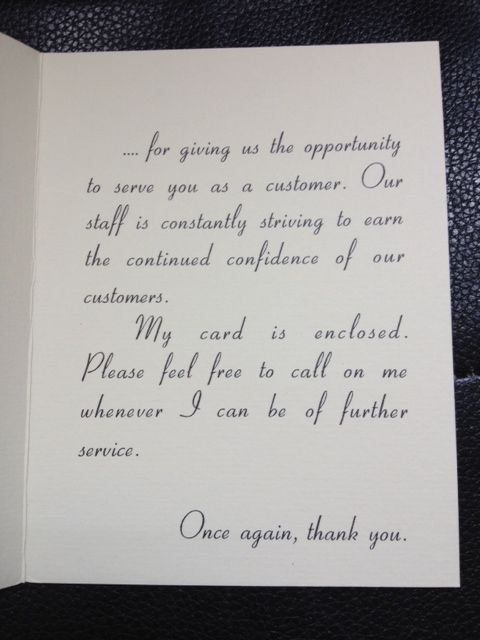 .... for giving us the opportunity
to serve you as a customer. Our
staff is constantly striving to earn
the continued confidence of our
customers.
My card is enclosed.
Please feel free to call on me
whenever I can be of further
service.
Once again, thank you.